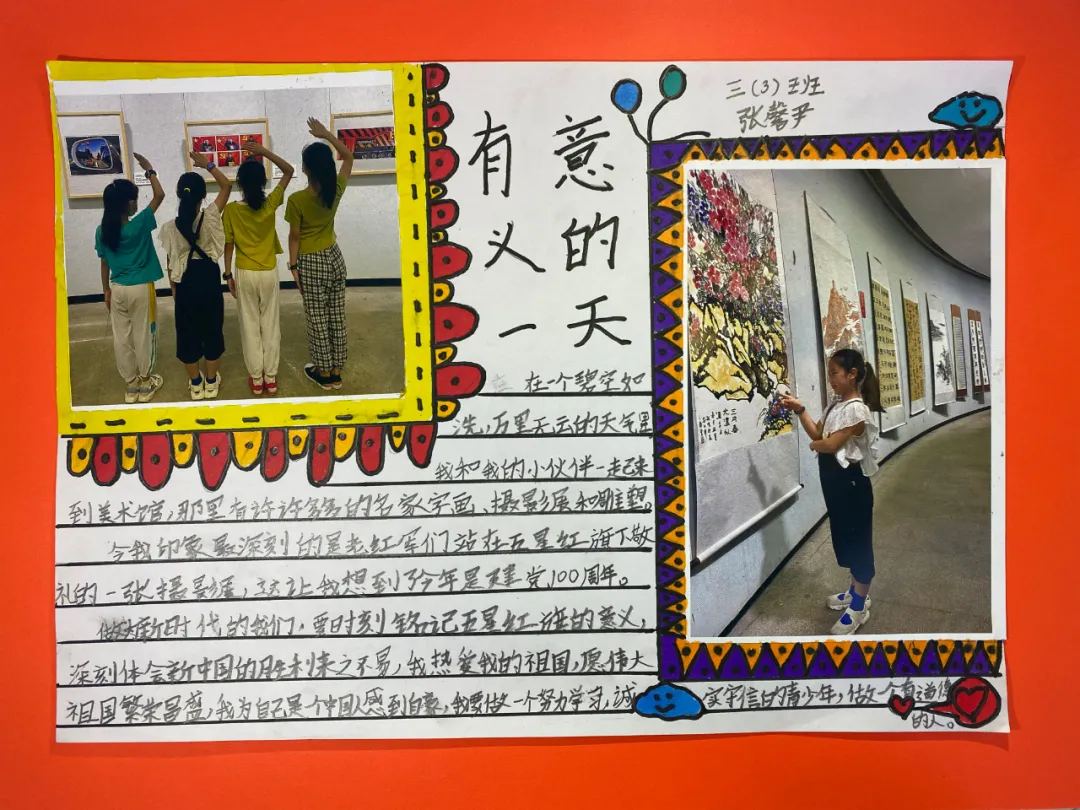 三（3）班
张馨尹
有意
义的
一天
在一个碧空如
洗，万里无云的天气里
我和我的小伙伴一起来
到美术馆，那里有许许多多的名家字画、摄影展和雕塑。
令我印象最深刻的是老红军们站在五星红旗下敬
礼的一张摄影展，这让我想到了今年是建党100周年。
做为新时代的我们，要时刻铭记五星红旗的意义，
深刻体会新中国的胜利来之不易，我热爱我的祖国，愿伟大
祖国繁荣昌盛，我为自己是个中国人感到自豪，我要做一个努力学习，诚实守信的青少年，做一个有道德
的人。